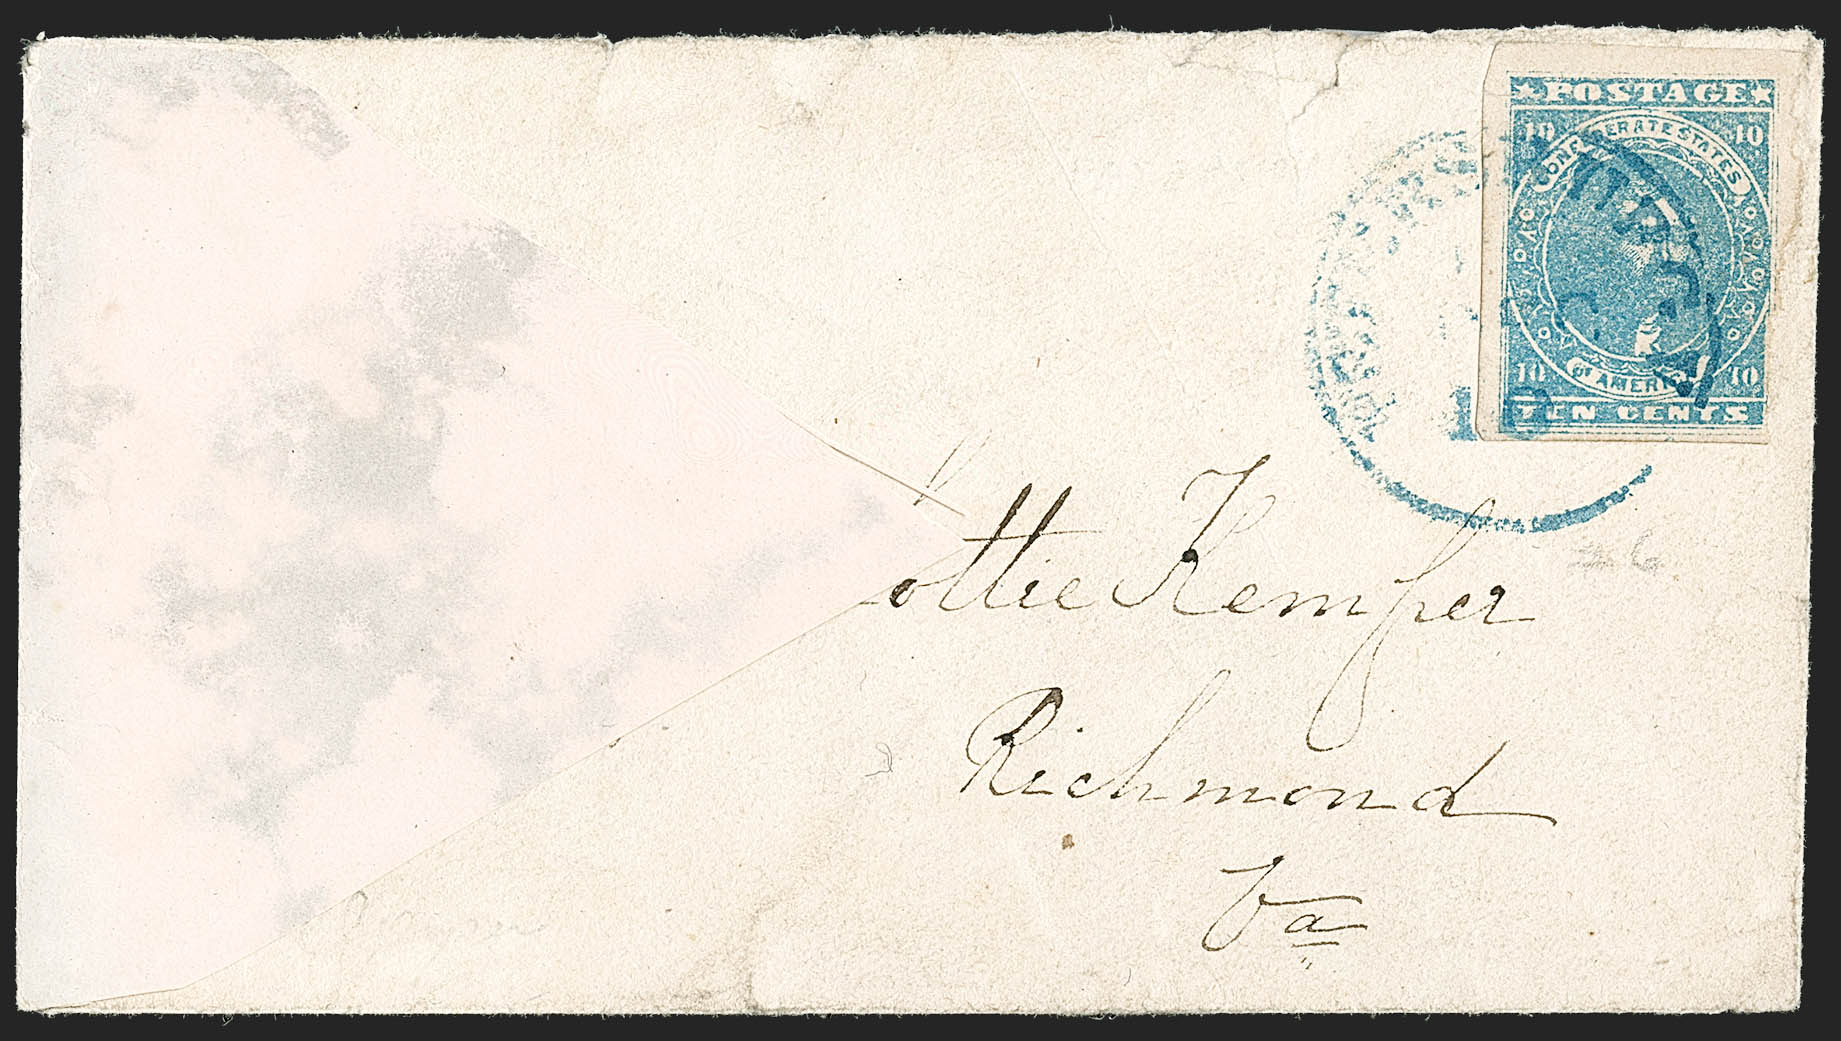 ★POSTAGE★
10 10
CONFEDERATE STATES
OF AMERICA
10 10
TEN CENTS
ottie Kemper
Richmond
Va